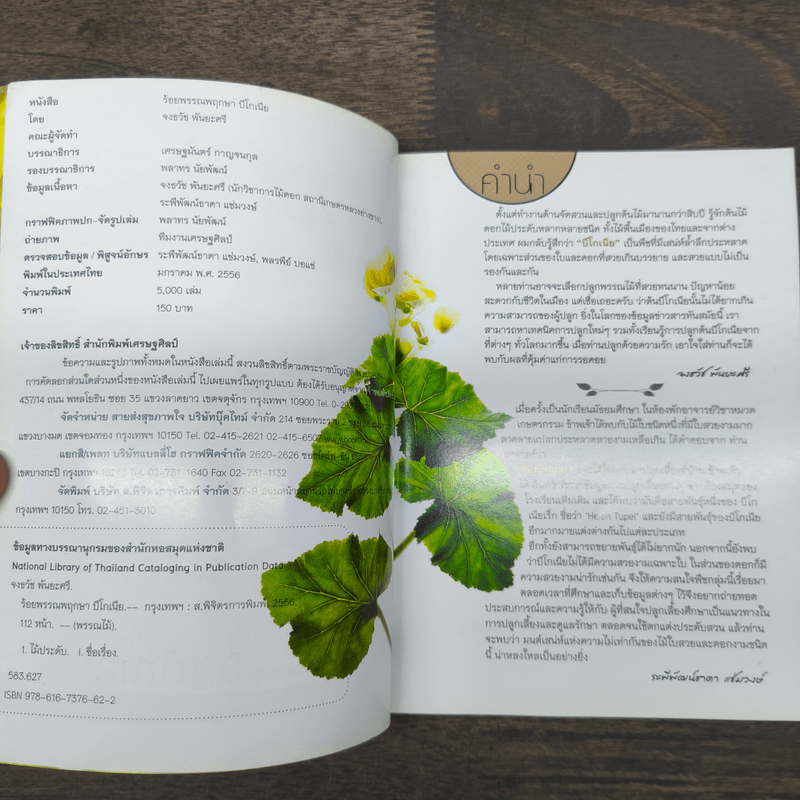 หนังสือ ร้อยพรรณพฤกษา บีโกเนีย
โดย จงธวัช พันยะศรี
คณะผู้จัดทำ
บรรณาธิการ เศรษฐมันตร์ กาญจนกุล
รองบรรณาธิการ พลาทร นัยพัฒน์
ข้อมูลเนื้อหา จงธวัช พันยะศรี (นักวิชาการไม้ดอก สถานีเกษตรหลวงอ่างขาง),
ระพีพัฒน์ธาดา แช่มวงษ์
กราฟฟิคภาพปก-จัดรูปเล่ม พลาทร นัยพัฒน์
ถ่ายภาพ ทีมงานเศรษฐศิลป์
ตรวจสอบข้อมูล / พิสูจน์อักษร ระพีพัฒน์ธาดา แช่มวงษ์, พลรพีย์ บอแช่
พิมพ์ในประเทศไทย มกราคม พ.ศ. 2556
จำนวนพิมพ์ 5,000 เล่ม
ราคา 150 บาท
เจ้าของลิขสิทธิ์ สำนักพิมพ์เศรษฐศิลป์
ข้อความและรูปภาพทั้งหมดในหนังสือเล่มนี้ สงวนลิขสิทธิ์ตามพระราชบัญญัติ
การคัดลอกส่วนใดส่วนหนึ่งของหนังสือเล่มนี้ ไปเผยแพร่ในทุกรูปแบบ ต้องได้รับอนุญาต
437/14 ถนน พหลโยธิน ซอย 35 แขวงลาดยาว เขตจตุจักร กรุงเทพฯ 10900 Tel.
จัดจำหน่าย สายส่งสุขภาพใจ บริษัทบุ๊คไทม์ จำกัด 214 ซอยพระ
แขวงบางมด เขตจอมทอง กรุงเทพฯ 10150 Tel. 02-415-2621 02-415-6507
แยกสี/เพลท บริษัทแบลลี่โฮ กราฟฟิคจำกัด 2620-2626
เขตบางกะปิ กรุงเทพฯ 10240 Tel. 02-731-1640 Fax 02-731-1132
จัดพิมพ์ บริษัท ส.พิจิตรการพิมพ์ จำกัด
กรุงเทพฯ 10150 โทร. 02-451-3010
ข้อมูลทางบรรณานุกรมของสำนักหอสมุดแห่งชาติ
National Library of Thailand Cataloging in Publication Data
จงธวัช พันยะศรี.
ร้อยพรรณพฤกษา บีโกเนีย.-- กรุงเทพฯ : ส.พิจิตรการพิมพ์, 2556.
112 หน้า. -- (พรรณไม้).
1. ไม้ประดับ. I. ชื่อเรื่อง.
583.627
ISBN 978-616-7376-62-2
คำนำ
ตั้งแต่ทำงานด้านจัดสวนและปลูกต้นไม้มานานกว่าสิบปี รู้จักต้นไม้
ดอกไม้ประดับหลากหลายชนิด ทั้งไม้พื้นเมืองของไทยและจากต่าง
ประเทศ ผมกลับรู้สึกว่า "บีโกเนีย" เป็นพืชที่มีเสน่ห์ล้ำลึกประหลาด
โดยเฉพาะส่วนของใบและดอกที่สวยเกินบรรยาย และสวยแบบไม่เป็น
รองกันและกัน
หลายท่านอาจจะเลือกปลูกพรรณไม้ที่สวยทนนาน ปัญหาน้อย
สะดวกกับชีวิตในเมือง แต่เชื่อเถอะครับ ว่าต้นบีโกเนียนั้นไม่ได้ยากเกิน
ความสามารถของผู้ปลูก ยิ่งในโลกของข้อมูลข่าวสารทันสมัยนี้ เรา
สามารถหาเทคนิคการปลูกใหม่ๆ รวมทั้งเรียนรู้การปลูกต้นบีโกเนียจาก
ที่ต่างๆ ทั่วโลกมากขึ้น เมื่อท่านปลูกด้วยความรัก เอาใจใส่ท่านก็จะได้
พบกับผลที่คุ้มค่าแก่การรอคอย
จงธวัช พันยะศรี
เมื่อครั้งเป็นนักเรียนมัธยมศึกษา ในห้องพักอาจารย์วิชาหมวด
เกษตรกรรม ข้าพเจ้าได้พบกับไม้ใบชนิดหนึ่งที่มีใบสวยงามมาก
ลวดลายแปลกประหลาดสวยงามเหลือเกิน ได้คำตอบจาก ท่าน
โรงเรียนเพิ่มเติม และได้พบว่ามันคือสายพันธุ์หนึ่งของ บีโก
เนียเร็ก ชื่อว่า 'Helen Tupel' และยังมีสายพันธุ์ของบีโกเนีย
อีกมากมายแตกต่างกันไปแต่ละประเภท
อีกทั้งยังสามารถขยายพันธุ์ได้ไม่ยากนัก นอกจากนี้ยังพบ
ว่าบีโกเนียไม่ได้มีความสวยงามเฉพาะใบ ในส่วนของดอกก็มี
ความสวยงามน่ารักเช่นกัน จึงให้ความสนใจพืชกลุ่มนี้เรื่อยมา
ตลอดเวลาที่ศึกษาและเก็บข้อมูลต่างๆ ไว้จึงอยากถ่ายทอด
ประสบการณ์และความรู้ให้กับ ผู้ที่สนใจปลูกเลี้ยงศึกษาเป็นแนวทางใน
การปลูกเลี้ยงและดูแลรักษา ตลอดจนใช้ตกแต่งประดับสวน แล้วท่าน
จะพบว่า มนต์เสน่ห์แห่งความไม่เท่ากันของไม้ใบสวยและดอกงามชนิด
นี้ น่าหลงใหลเป็นอย่างยิ่ง
ระพีพัฒน์ธาดา แช่มวงษ์